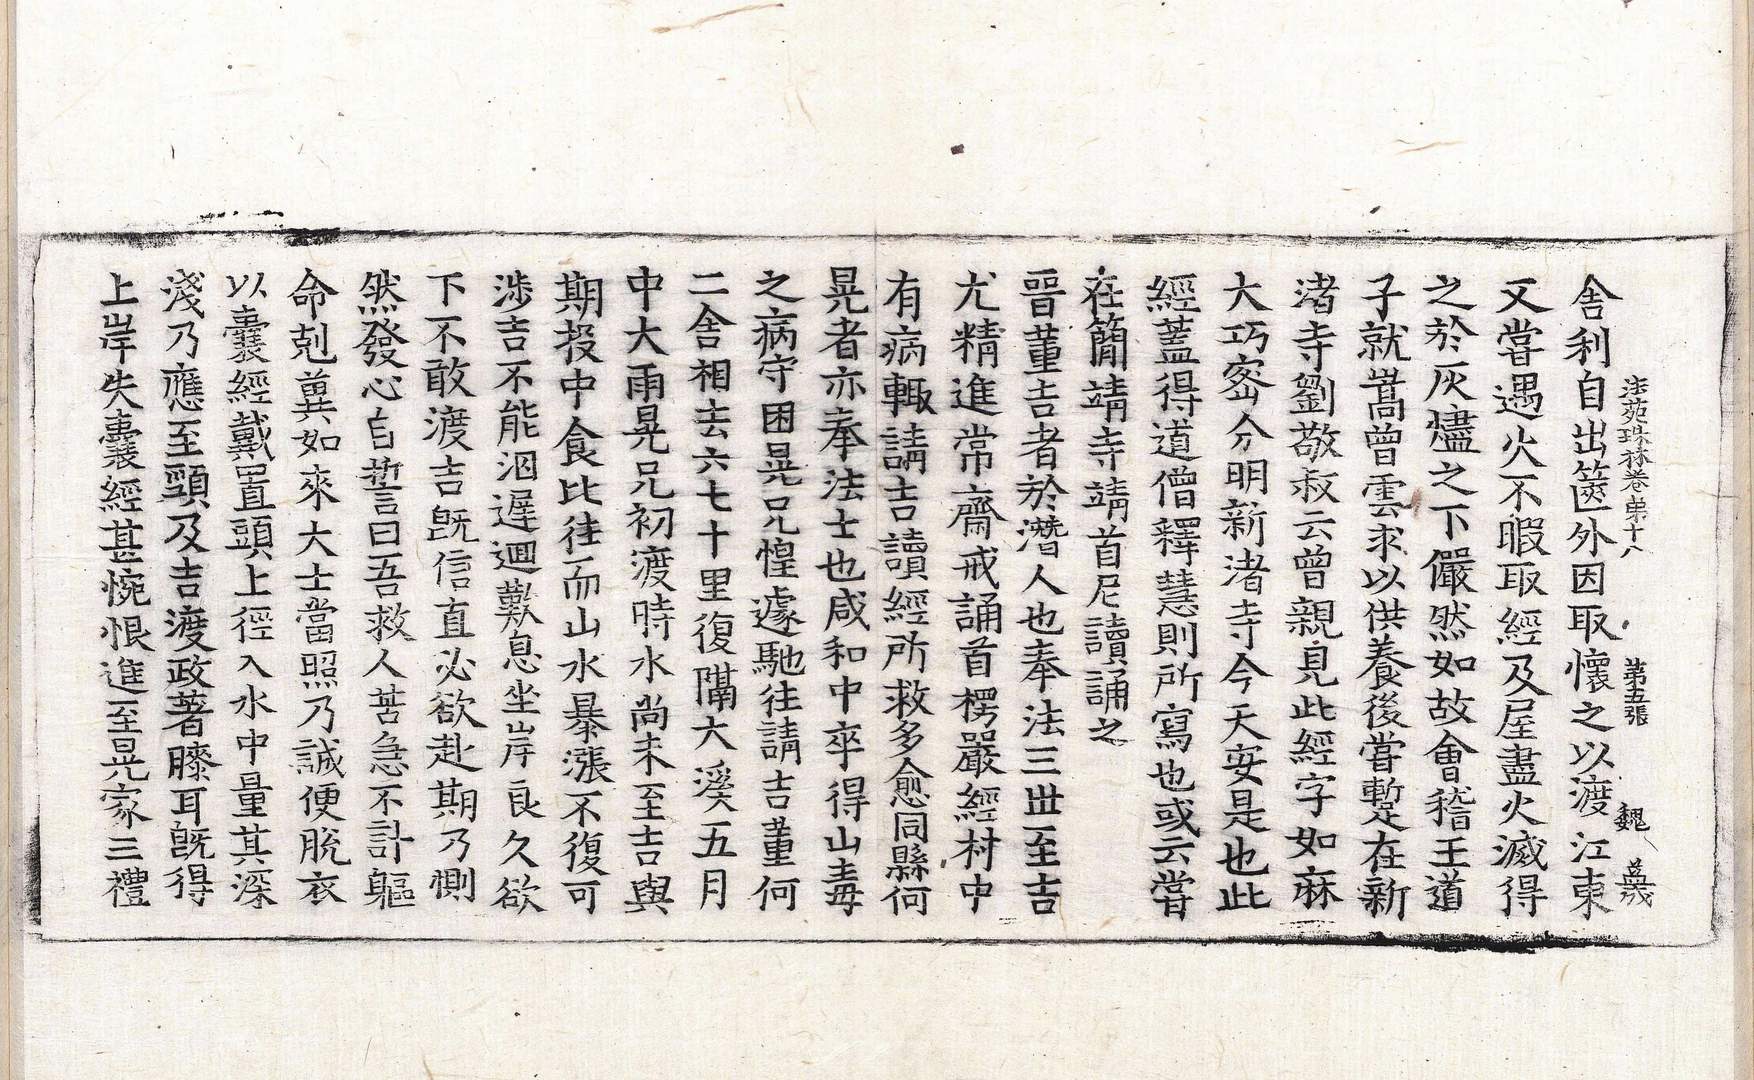 法苑珠林卷弟十八 第五張 魏 㠯
舎利自出篋外因取懷之以渡江東
又嘗遇火不暇取經及屋盡火滅得
之於灰燼之下儼然如故會稽王道
子就嵩曾雲求以供養後嘗蹔在新
渚寺劉敬叔云曾親見此經字如麻
大巧密分明新渚寺今天安是也此
經蓋得道僧釋慧則所寫也或云嘗
在簡靖寺靖首尼讀誦之
晉董吉者於潛人也奉法三世至吉
尤精進常齋戒誦首楞嚴經村中
有病輙請吉讀經所救多愈同縣何
晃者亦奉法士也咸和中卒得山毒
之病守困晃兄惶遽馳往請吉董何
二舎相去六七十里復隔大溪五月
中大雨晃兄初渡時水尚未至吉與
期投中食比往而山水暴漲不復可
渉吉不能泅遲迴歎息坐岸良久欲
下不敢渡吉旣信直必欲赴期乃惻
然發心自誓曰吾救人苦急不計軀
命剋兾如來大士當照乃誠便脫衣
以囊經戴置頭上徑入水中量其深
淺乃應至頸及吉渡政著膝耳旣得
上岸失囊經甚惋恨進至晃家三禮